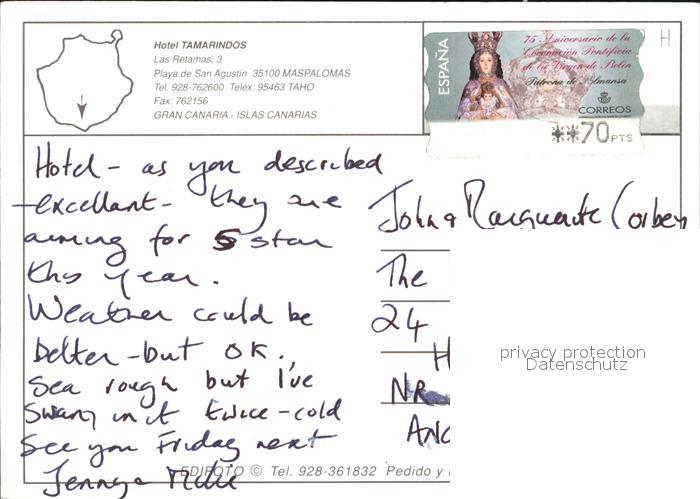 Hotel TAMARINDOS
Las Retamas, 3
Playa de San Agustin 35100 MASPALOMAS
Tel. 928-762600 Telex: 95463 TAHO
Fax: 762156
GRAN CANARIA - ISLAS CANARIAS
ESPAÑA
75 Aniversario de la
Coronación Pontificia
de la Virgen de Belén
Patrona de Almansa
CORREOS
**70 PTS
H
Hotel - as you described
- excellant - they are
aiming for 5 star
this year.
Weather could be
better - but OK.
Sea rough but I've
swam in it twice - cold
See you Friday next
Jenny &
John & Marguerite Corben
The
24
H
NR
ANG
privacy protection
Datenschutz
EDIFOTO © Tel. 928-361832 Pedido y